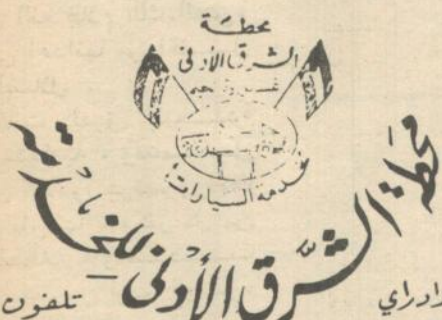 محطة
الشرق الأدنى
خدمة السيارات
محطة الشرق الأدنى
رادراي
تلفون